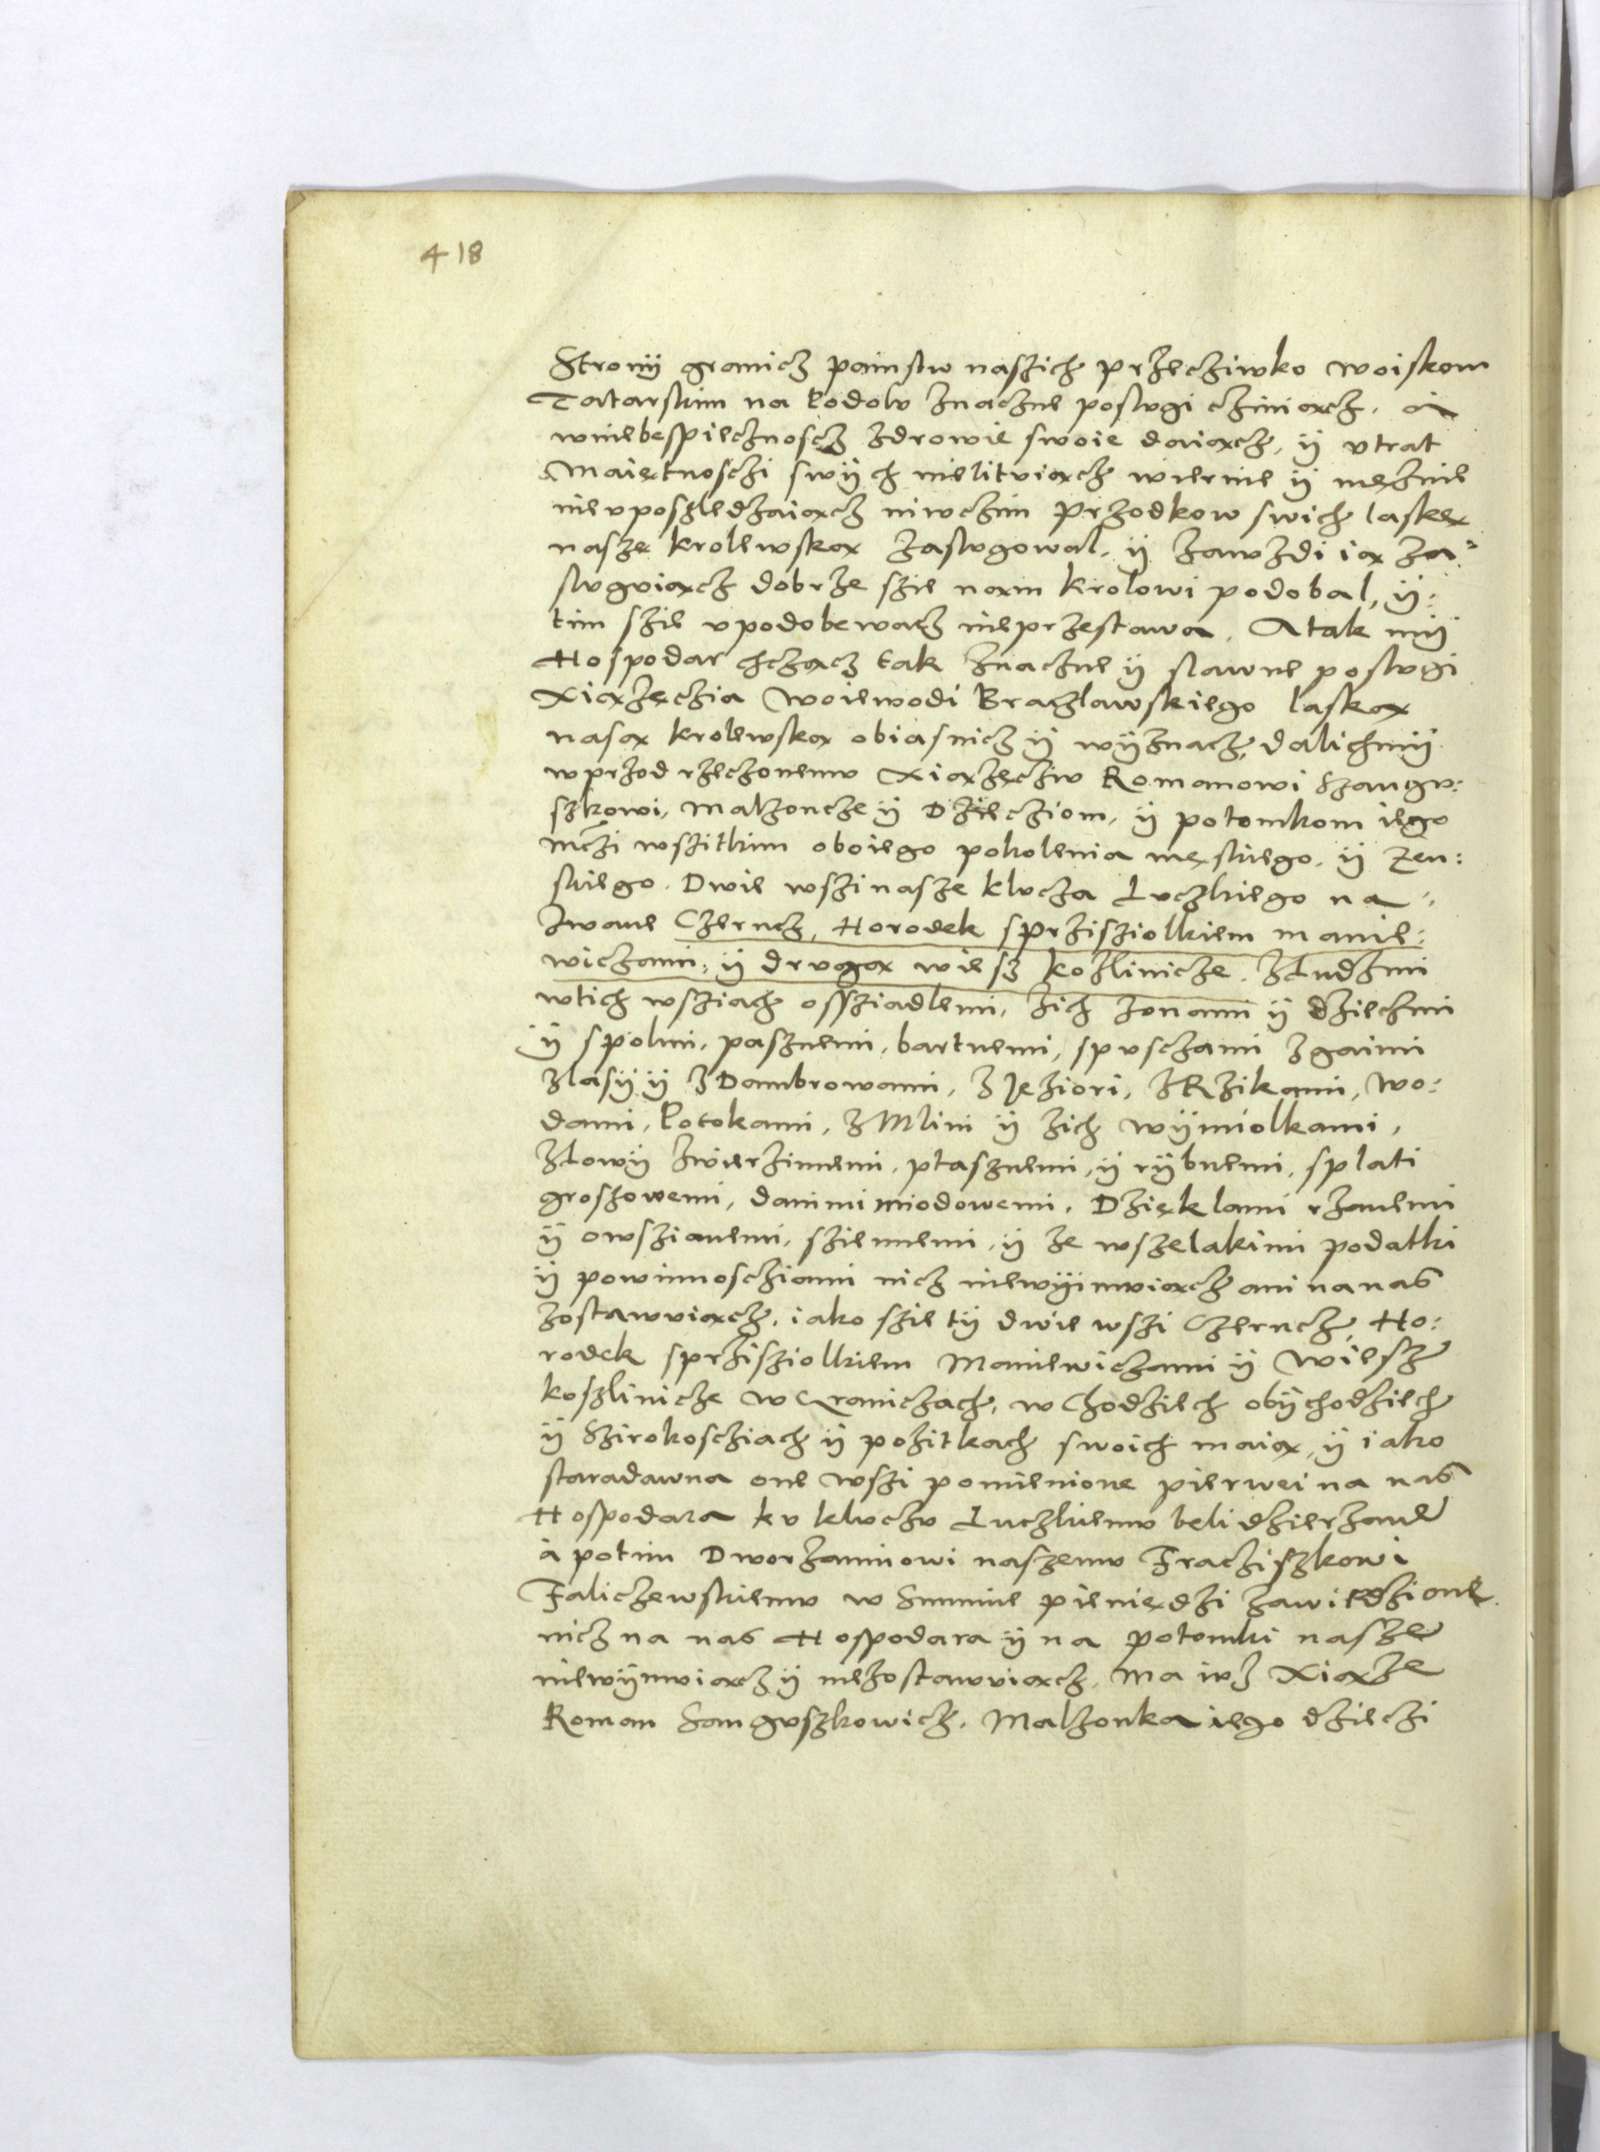 418
Stronÿ granicz painstw naszich przecziwko woiskom
Tatarskim na kodolv znaczne poslvgi cziniącz, a
wniebespiecznoscz zdrowie swoie daiącz, ÿ vtrat
Maiętnosczi swÿch nielitviącz wiernie ÿ mężnie
nievposzledzaiącz niwczim przodkow swich laskę
naszę krolewską zaslvgowal, ÿ zawzdi ią za:
slvgviącz dobrze szie nam krolowi podobal, ÿ:
tim szie vpodobewacz nieprzestawa. A tak mÿ
Hospodar chcząc tak znaczne ÿ slawne poslvgi
Xiążęczia Woiewodi Braczlawskiego laską
nasą krolewską obiasnicz ÿ wÿznacz, dalichmÿ
wprzod rzeczonemv Xiążęcziv Romanowi Szangv:
szkowi, malzoncze ÿ Dziecziom, ÿ potomkom iego
mczi wszitkim oboiego pokolenia męskiego, ÿ Zen:
skiego. Dwie wszi nasze klvcza Lvczkiego na:
zwane Czerncz, Horodek sprzisziolkiem manie:
wiczami, ÿ drvgą wiesz kozlinicze, zLudzmi
wtich wsziach osziadlemi, zich zonami ÿ dzieczmi
ÿ spolmi, pasznemi, bartnemi, spvsczami zgaimi
zlasÿ ÿ zDambrowami, zJeziori, zRzikami, wo:
dami, Potokami, zMlini ÿ zich wÿmiolkami,
zLowÿ zwierzinnemi, ptasznemi, ÿ rÿbnemi, splati
groszowemi, danimi miodowemi, Dzięklami rzanemi
ÿ owszianemi, sziennemi, ÿ ze wszelakimi podatki
ÿ powinnoscziami nicz niewÿimviącz ani na nas
zostawviącz, iako szie tÿ dwie wszi Czerncz, Ho:
rodek sprzisziolkiem Maniewiczami ÿ Wiesz
koszlinicze w Graniczach, w Chodziech obÿchodziech
ÿ Szirokoscziach ÿ pozitkach swoich maią, ÿ iako
staradawna one wszi pomienione pierwei na nas
Hospodara kv klvczv Lvczkiemv beli dzierzane
à potim Dworzaninowi naszemv Fracziszkowi
Faliczewskiemv w Summie pieniędzi zawiedzione
nicz na nas Hospodara ÿ na potomki nasze
niewÿmviącz ÿ niezostawviącz. Ma ivz Xiąze
Roman Sangvszkowicz, Malzonka iego dzieczi